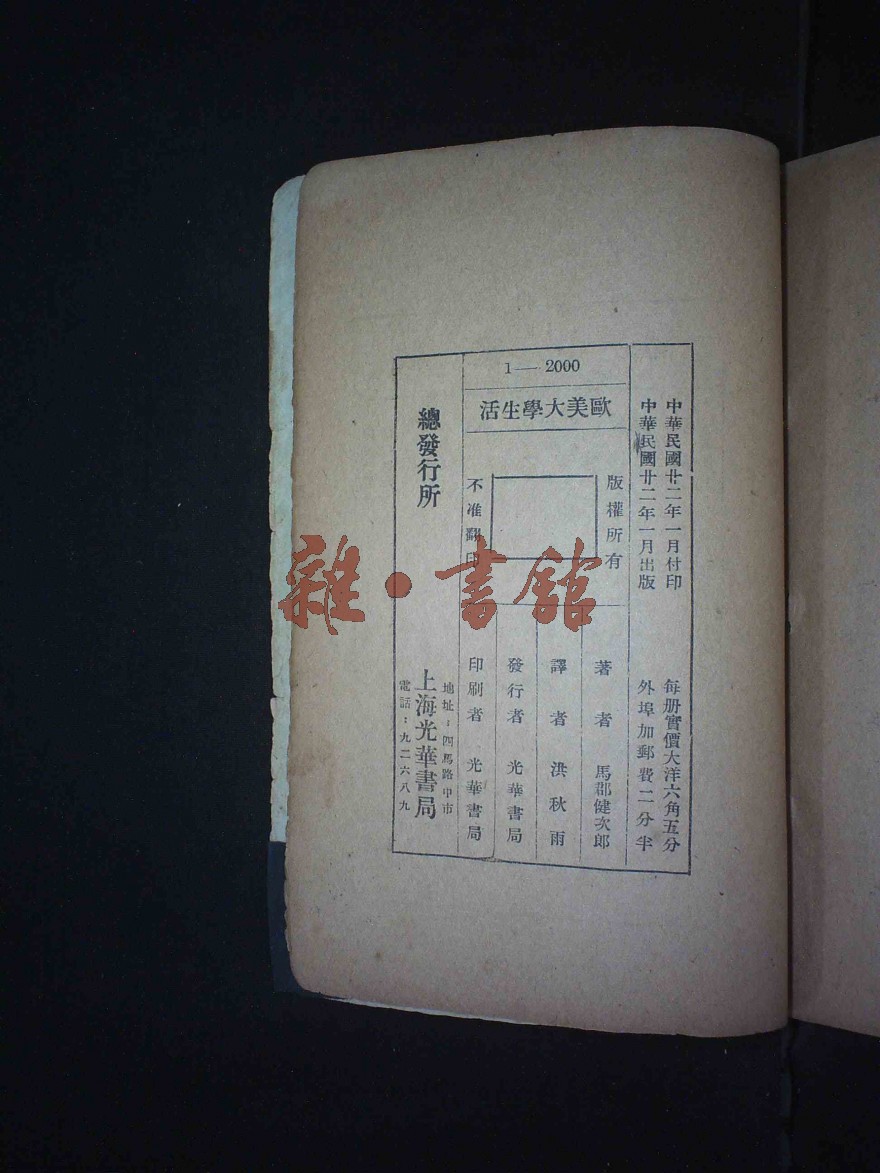 中華民國廿二年一月付印
中華民國廿二年一月出版
每册實價大洋六角五分
外埠加郵費二分半
1—2000
歐美大學生活
版權所有
不准翻印
著者 馬郡健次郎
譯者 洪秋雨
發行者 光華書局
印刷者 光華書局
總發行所
地址：四馬路中市
上海光華書局
電話：九二六八九
雜·書館